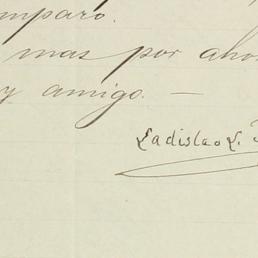 mparo.
mas por aho
y amigo. —
Ladislao L.